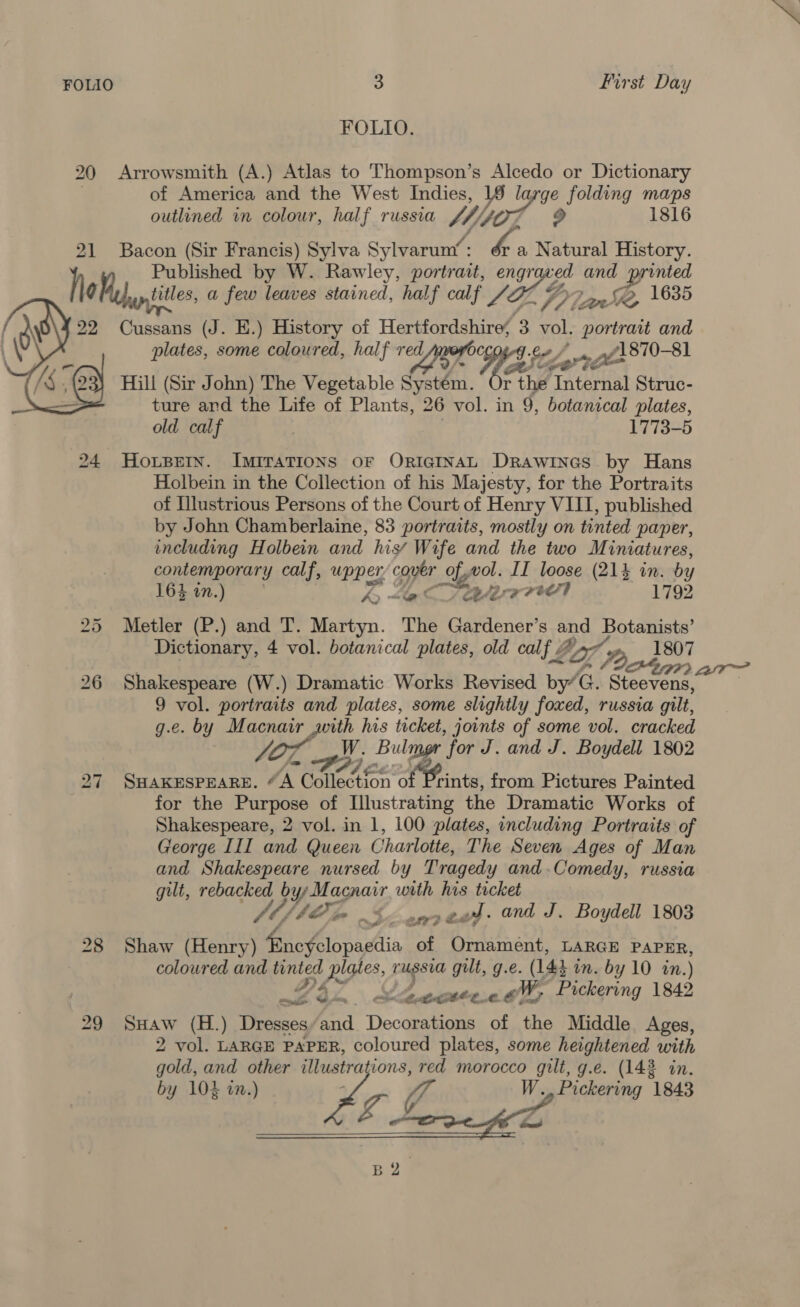 FOLIO 3 First Day
FOLIO.
20 Arrowsmith (A.) Atlas to Thompson's Alcedo or Dictionary
of America and the West Indies, 18 large folding maps
outlined in colour, half russia 1816
21 Bacon (Sir Francis) Sylva Sylvarum: or a Natural History.
Published by W. Rawley, portrait, engraved and printed
titles, a few leaves stained, half calf 1635
22 Cussans (J. E.) History of Hertfordshire, 3 vol. portrait and
plates, some coloured, half red morocco, g.e. 1870-81
23 Hill (Sir John) The Vegetable System. Or the Internal Struc-
ture and the Life of Plants, 26 vol. in 9, botanical plates,
old calf 1773-5
24 HOLBEIN. IMITATIONS OF ORIGINAL DRAWINGS by Hans
Holbein in the Collection of his Majesty, for the Portraits
of Illustrious Persons of the Court of Henry VIII, published
by John Chamberlaine, 83 portraits, mostly on tinted paper,
including Holbein and his Wife and the two Miniatures,
contemporary calf, upper cover of vol. II loose (21½ in. by
16½ in.) 1792
25 Metler (P.) and T. Martyn. The Gardener's and Botanists'
Dictionary, 4 vol. botanical plates, old calf 1807
26 Shakespeare (W.) Dramatic Works Revised by G. Steevens,
9 vol. portraits and plates, some slightly foxed, russia gilt,
g.e. by Macnair with his ticket, joints of some vol. cracked
W. Bulmer for J. and J. Boydell 1802
27 SHAKESPEARE. A Collection of Prints, from Pictures Painted
for the Purpose of Illustrating the Dramatic Works of
Shakespeare, 2 vol. in 1, 100 plates, including Portraits of
George III and Queen Charlotte, The Seven Ages of Man
and Shakespeare nursed by Tragedy and Comedy, russia
gilt, rebacked by Macnair with his ticket
J. and J. Boydell 1803
28 Shaw (Henry) Encyclopaedia of Ornament, LARGE PAPER,
coloured and tinted plates, russia gilt, g.e. (14½ in. by 10 in.)
W. Pickering 1842
29 SHAW (H.) Dresses and Decorations of the Middle Ages,
2 vol. LARGE PAPER, coloured plates, some heightened with
gold, and other illustrations, red morocco gilt, g.e. (14¾ in.
by 10½ in.) W. Pickering 1843
B 2